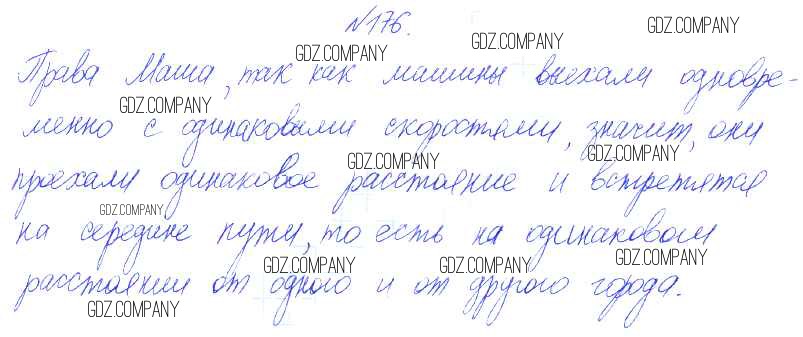 №176.
Права Маша, так как машины выехали одновре-
менно с одинаковыми скоростями, значит, они
проехали одинаковое расстояние и встретятся
на середине пути, то есть на одинаковом
расстоянии от одного и от другого города.
GDZ.COMPANY
GDZ.COMPANY
GDZ.COMPANY
GDZ.COMPANY
GDZ.COMPANY
GDZ.COMPANY
GDZ.COMPANY
GDZ.COMPANY
GDZ.COMPANY
GDZ.COMPANY
GDZ.COMPANY